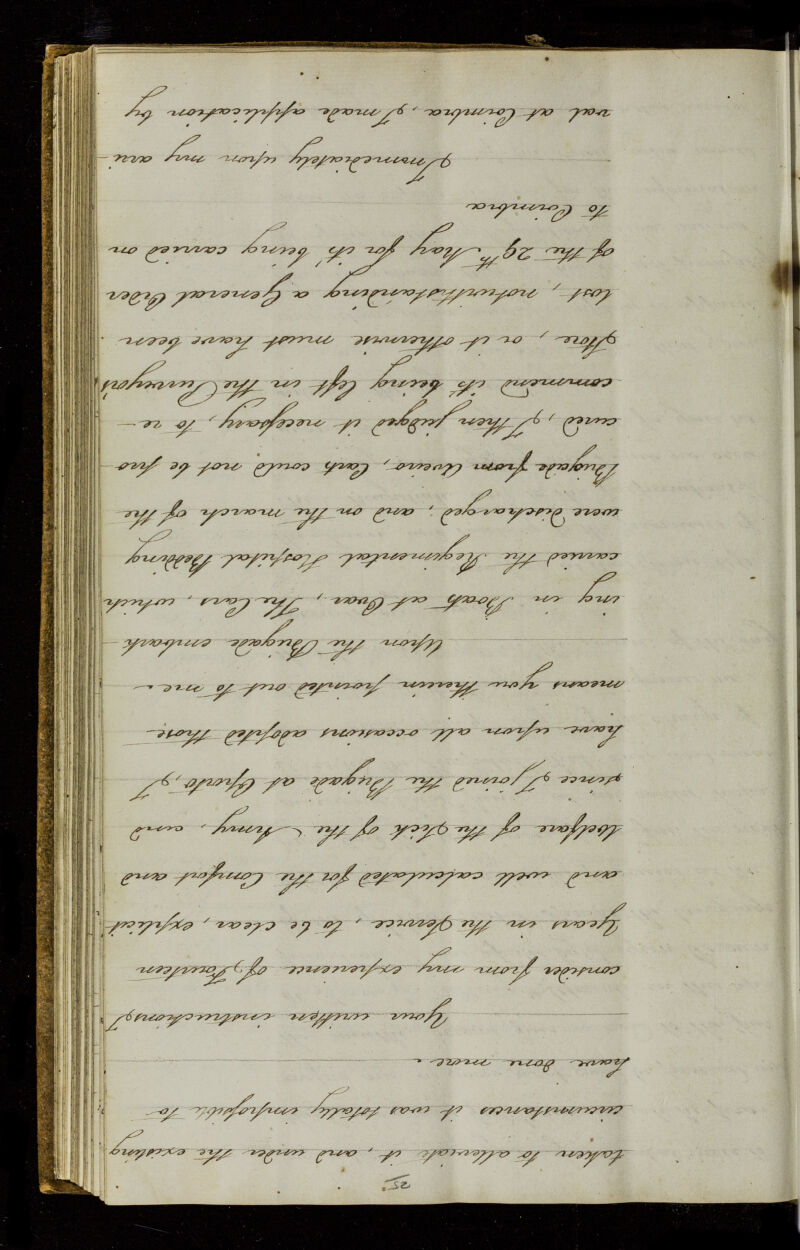 25
taken to alleviate it, and under the existing
circumstances it was totally impossible to
have done more.
Your written instructions, I
consider from my experience of, Fourteen
Years in the Service, to be clear, explicit
and well calculated for the Comfort and
Wellfare of the Sick of the Army, and
since I joined the Brigade at Oporto, I
have upon all occasions adopted those
means you therein pointed out to me.
Upon the Brigade embark-
ing in Boats at Ovar, The Cars, which
carried the Regimental Hospital Bedding
were discharged, and on the march of the
Brigade from Aveiro, Cars could not be pro-
cured, I then judged it necessary, to re-
commend it's being left in the Purveyor's
Store, or it otherwise must have been
lost, notwithstanding a General Order
of the 29th May for it's being carried on
to Coimbra
Immediately upon my arri-
val at Coimbra, I made application by